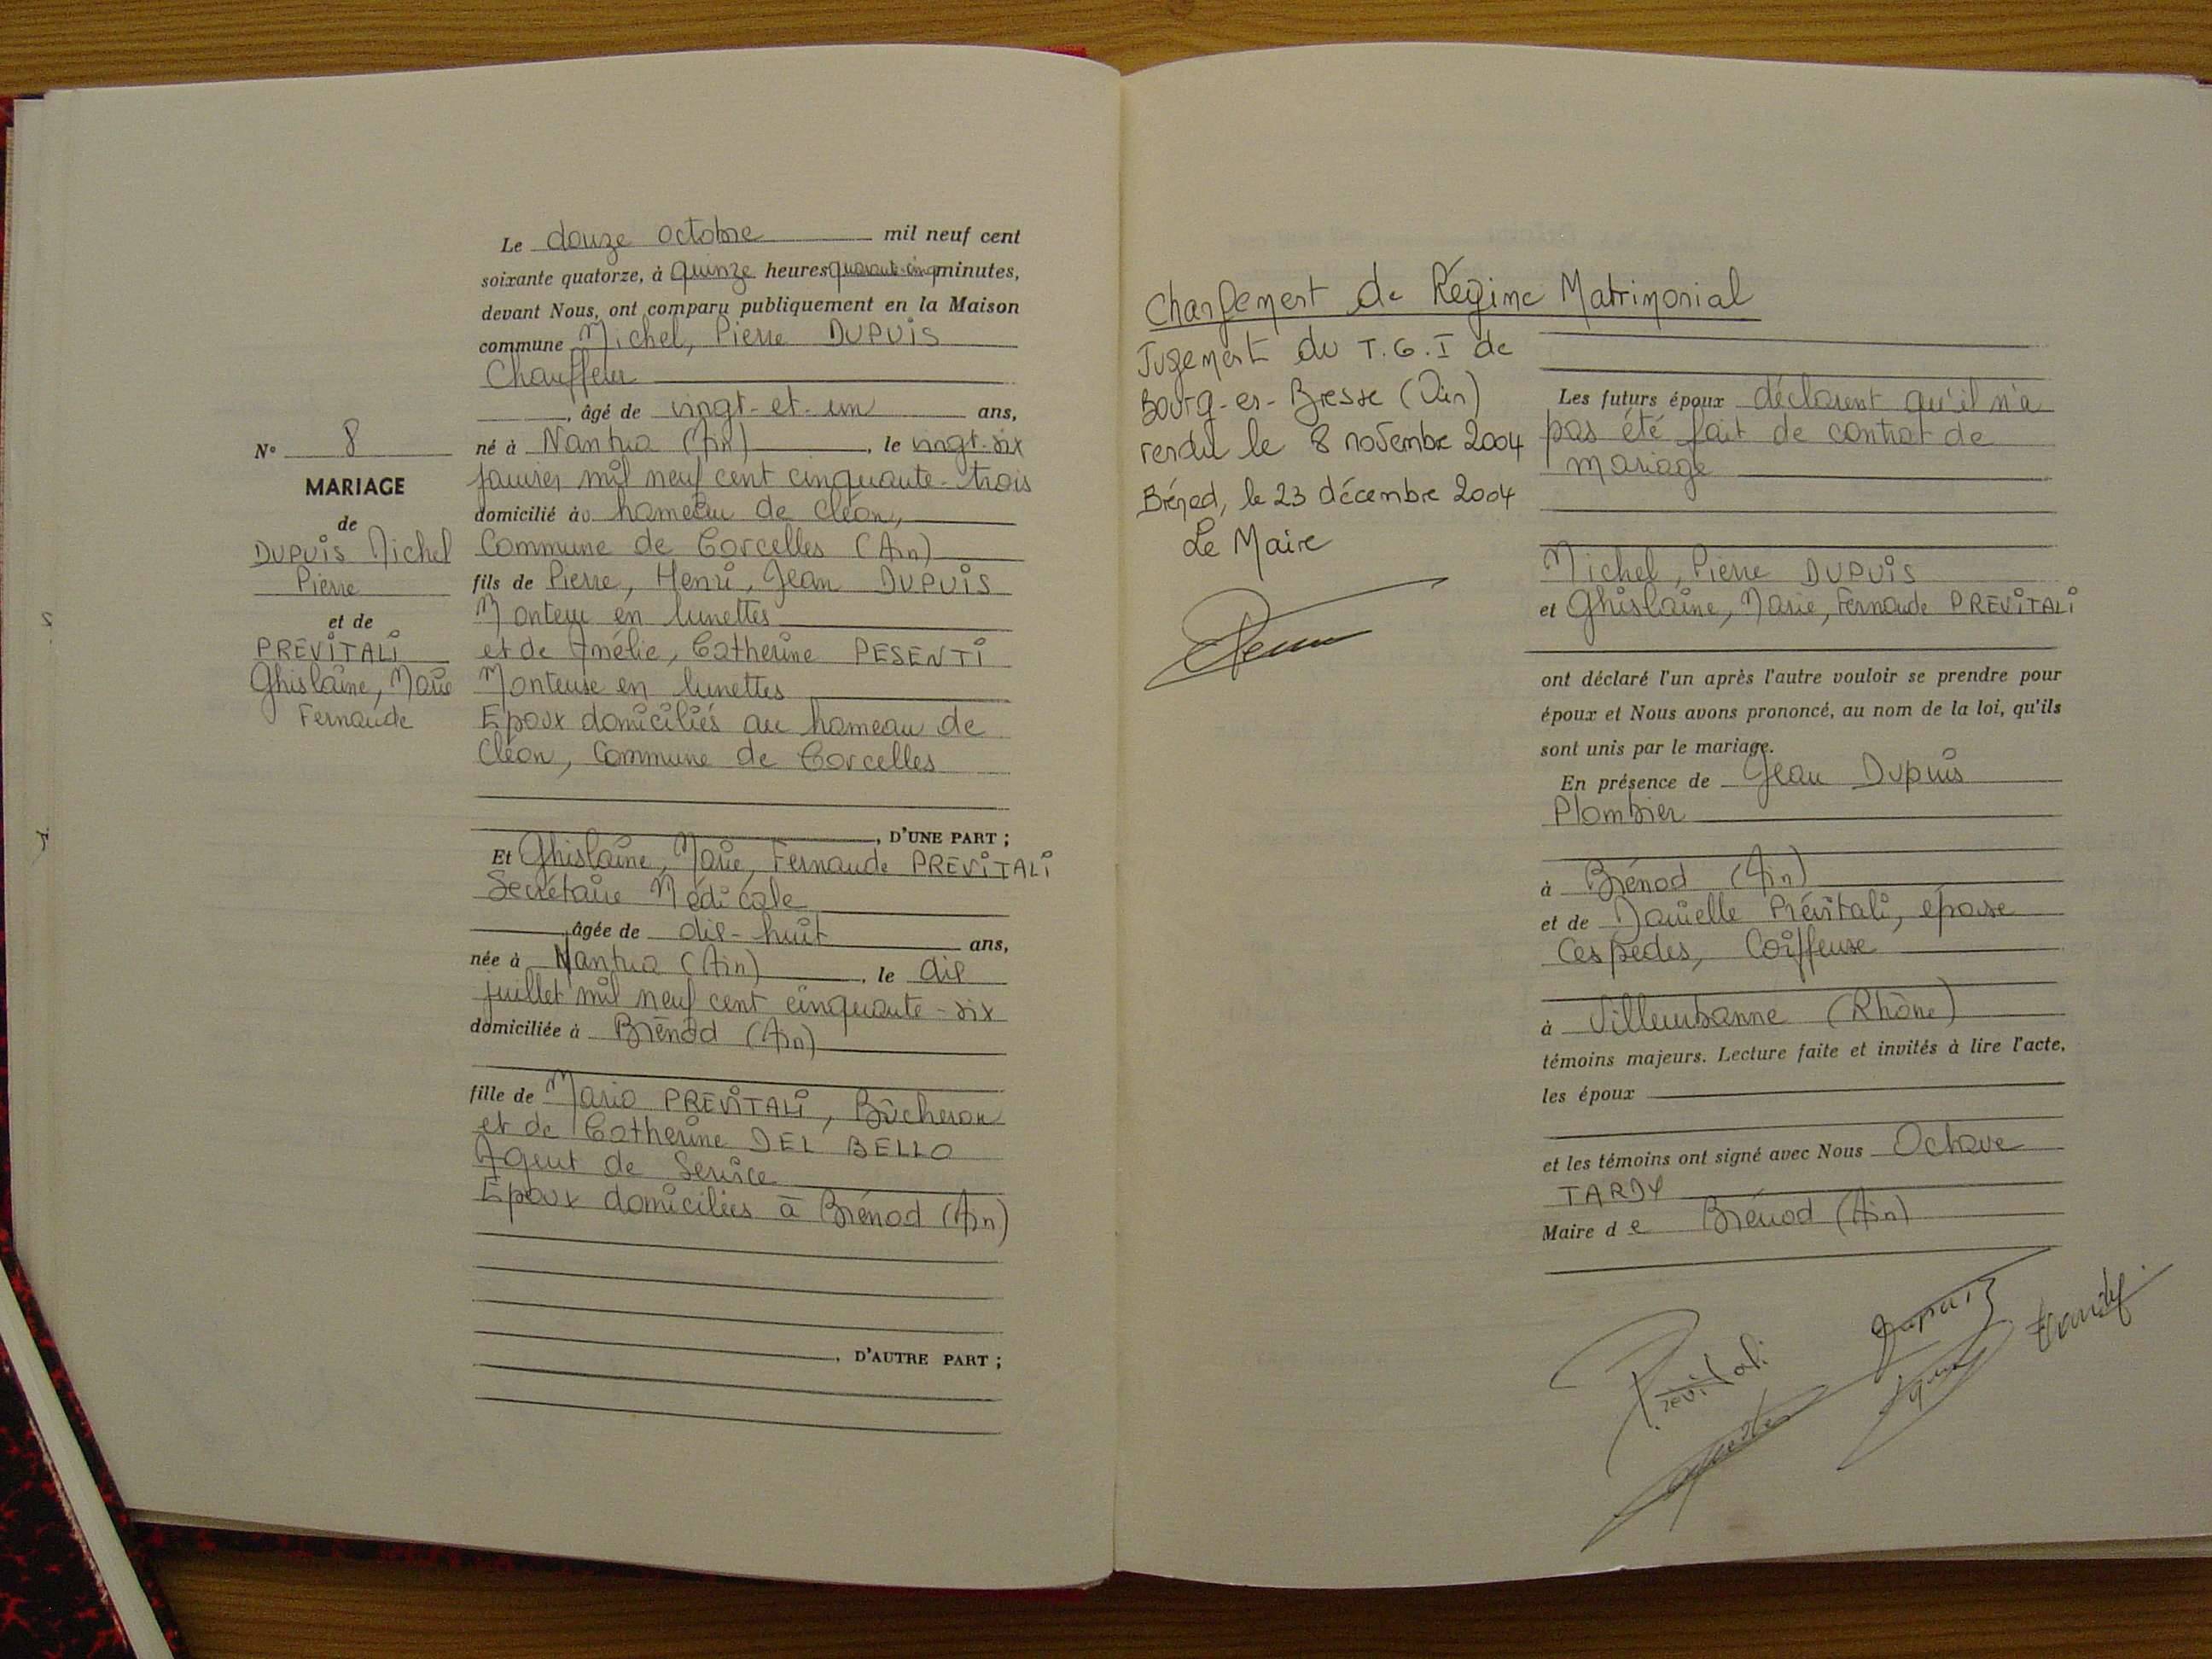 N° 8
MARIAGE
de
DUPUIS Michel
Pierre
et de
PREVITALI
Ghislaine, Marie
Fernande
Le douze octobre mil neuf cent
soixante quatorze, à quinze heures quarante-cinq minutes,
devant Nous, ont comparu publiquement en la Maison
commune Michel, Pierre DUPUIS
Chauffeur
, âgé de vingt-et-un ans,
né à Nantua (Ain), le vingt-six
janvier mil neuf cent cinquante-trois
domicilié au hameau de Cléon,
Commune de Corcelles (Ain)
fils de Pierre, Henri, Jean DUPUIS
Monteur en lunettes
et de Amélie, Catherine PESENTI
Monteuse en lunettes
Epoux domiciliés au hameau de
Cléon, Commune de Corcelles
, D'UNE PART ;
Et Ghislaine, Marie, Fernande PREVITALI
Secrétaire Médicale
, âgée de dix-huit ans,
née à Nantua (Ain), le dix
juillet mil neuf cent cinquante-six
domiciliée à Brénod (Ain)
fille de Mario PREVITALI, Bûcheron
et de Catherine DEL BELLO
Agent de Service
Epoux domiciliés à Brénod (Ain)
, D'AUTRE PART ;
Changement de Régime Matrimonial
Jugement du T.G.I de
Bourg-es-Bresse (Ain)
rendu le 8 novembre 2004
Brénod, le 23 décembre 2004
Le Maire
Les futurs époux déclarent qu'il n'a
pas été fait de contrat de
mariage
Michel, Pierre DUPUIS
et Ghislaine, Marie, Fernande PREVITALI
ont déclaré l'un après l'autre vouloir se prendre pour
époux et Nous avons prononcé, au nom de la loi, qu'ils
sont unis par le mariage.
En présence de Jean Dupuis
Plombier
à Brénod (Ain)
et de Danielle Prévitali, épouse
Cespedes, Coiffeuse
à Villeurbanne (Rhône)
témoins majeurs. Lecture faite et invités à lire l'acte,
les époux
et les témoins ont signé avec Nous Octave
TARDY
Maire de Brénod (Ain)
Prévitali
Dupuis